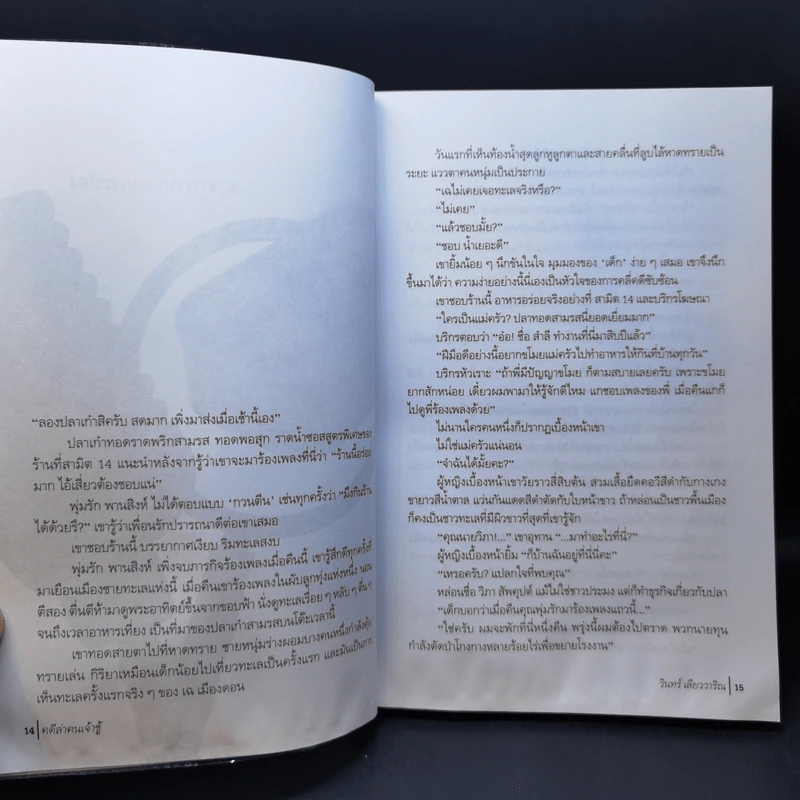 “ลองปลาเก๋าสิครับ สดมาก เพิ่งมาส่งเมื่อเช้านี้เอง”
ปลาเก๋าทอดราดพริกสามรส ทอดพอสุก ราดน้ำซอสสูตรพิเศษของ
ร้านที่สามิต 14 แนะนำหลังจากรู้ว่าเขาจะมาร้องเพลงที่นี่ว่า “ร้านนี้อร่อย
มาก ไอ้เสี่ยวต้องชอบแน่”
พุ่มรัก พานสิงห์ ไม่ได้ตอบแบบ ‘กวนตีน’ เช่นทุกครั้งว่า “มึงกินร้าน
ได้ด้วยรึ?” เขารู้ว่าเพื่อนรักปรารถนาดีต่อเขาเสมอ
เขาชอบร้านนี้ บรรยากาศเงียบ ริมทะเลสงบ
พุ่มรัก พานสิงห์ เพิ่งจบภารกิจร้องเพลงเมื่อคืนนี้ เขารู้สึกดีทุกครั้งที่
มาเยือนเมืองชายทะเลแห่งนี้ เมื่อคืนเขาร้องเพลงในผับลูกทุ่งแห่งหนึ่ง นอน
ตีสอง ตื่นตีห้ามาดูพระอาทิตย์ขึ้นจากขอบฟ้า นั่งดูทะเลเรื่อย ๆ หลับ ๆ ตื่น ๆ
จนถึงเวลาอาหารเที่ยง เป็นที่มาของปลาเก๋าสามรสบนโต๊ะเวลานี้
เขาทอดสายตาไปที่หาดทราย ชายหนุ่มร่างผอมบางคนหนึ่งกำลังคุ้ย
ทรายเล่น กิริยาเหมือนเด็กน้อยไปเที่ยวทะเลเป็นครั้งแรก และมันเป็นการ
เห็นทะเลครั้งแรกจริง ๆ ของ เฉ เมืองดอน
14 | คดีล่าคนเจ้าชู้
วันแรกที่เห็นท้องน้ำสุดลูกหูลูกตาและสายคลื่นที่ลูบไล้หาดทรายเป็น
ระยะ แววตาคนหนุ่มเป็นประกาย
“เฉไม่เคยเจอทะเลจริงหรือ?”
“ไม่เคย”
“แล้วชอบมั้ย?”
“ชอบ น้ำเยอะดี”
เขายิ้มน้อย ๆ นึกขันในใจ มุมมองของ ‘เด็ก’ ง่าย ๆ เสมอ เขาจึงนึก
ขึ้นมาได้ว่า ความง่ายอย่างนี้นี่เองเป็นหัวใจของการคลี่คดีซับซ้อน
เขาชอบร้านนี้ อาหารอร่อยจริงอย่างที่ สามิต 14 และบริกรโฆษณา
“ใครเป็นแม่ครัว? ปลาทอดสามรสนี่ยอดเยี่ยมมาก”
บริกรตอบว่า “อ๋อ! ชื่อ สำลี ทำงานที่นี่มาสิบปีแล้ว”
“ฝีมือดีอย่างนี้อยากขโมยแม่ครัวไปทำอาหารให้กินที่บ้านทุกวัน”
บริกรหัวเราะ “ถ้าพี่มีปัญญาขโมย ก็ตามสบายเลยครับ เพราะขโมย
ยากสักหน่อย เดี๋ยวผมพามาให้รู้จักดีไหม แกชอบเพลงของพี่ เมื่อคืนแกก็
ไปดูพี่ร้องเพลงด้วย”
ไม่นานใครคนหนึ่งก็ปรากฏเบื้องหน้าเขา
ไม่ใช่แม่ครัวแน่นอน
“จำฉันได้มั้ยคะ?”
ผู้หญิงเบื้องหน้าเขาวัยราวสี่สิบต้น สวมเสื้อยืดคอวีสีดำกับกางเกง
ขายาวสีน้ำตาล แว่นกันแดดสีดำตัดกับใบหน้าขาว ถ้าหล่อนเป็นชาวพื้นเมือง
ก็คงเป็นชาวทะเลที่มีผิวขาวที่สุดที่เขารู้จัก
“คุณนายวิภา!...” เขาอุทาน “...มาทำอะไรที่นี่?”
ผู้หญิงเบื้องหน้ายิ้ม “ก็บ้านฉันอยู่ที่นี่นี่คะ”
“เหรอครับ? แปลกใจที่พบคุณ”
หล่อนชื่อ วิภา สัพคุปต์ แม้ไม่ใช่ชาวประมง แต่ก็ทำธุรกิจเกี่ยวกับปลา
“เด็กบอกว่าเมื่อคืนคุณพุ่มรักมาร้องเพลงแถวนี้...”
“ใช่ครับ ผมจะพักที่นี่หนึ่งคืน พรุ่งนี้ผมต้องไปตราด พวกนายทุน
กำลังตัดป่าโกงกางหลายร้อยไร่เพื่อขยายโรงงาน”
วินทร์ เลียววาริณ | 15